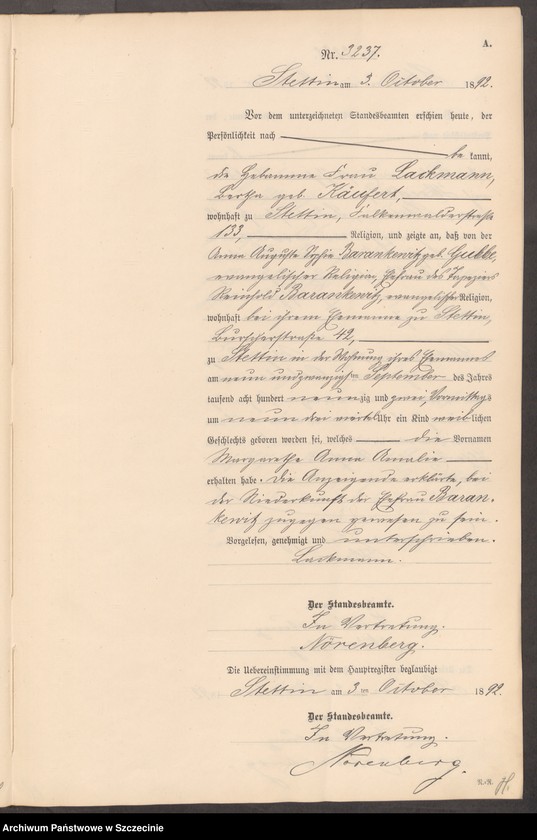 A.
Nr. 3237.
Stettin am 3. October 1892.
Vor dem unterzeichneten Standesbeamten erschien heute, der
Persönlichkeit nach
be kannt,
die Hebamme Frau Lackmann,
Bertha geb. Käufert,
wohnhaft zu Stettin, Falkenwalderstraße
133, Religion, und zeigte an, daß von der
Anna Auguste Sophie Barankewitz geb. Gubbe,
evangelischer Religion, Ehefrau des Tapeziers
Reinhold Barankewitz, evangelischer Religion,
wohnhaft bei ihrem Ehemanne zu Stettin,
Burscherstraße 42,
zu Stettin in der Wohnung ihres Ehemannes
am neun und zwanzigsten September des Jahres
tausend acht hundert neunzig und zwei, Vormittags
um neun drei viertel Uhr ein Kind weiblichen
Geschlechts geboren worden sei, welches die Vornamen
Margarethe Anna Amalie
erhalten habe. Die Anzeigende erklärte, bei
der Niederkunft der Ehefrau Baran-
kewitz zugegen gewesen zu sein.
Vorgelesen, genehmigt und unterschrieben.
Lackmann.
Der Standesbeamte.
In Vertretung.
Nörenberg.
Die Uebereinstimmung mit dem Hauptregister beglaubigt
Stettin am 3ten October 1892.
Der Standesbeamte.
In Vertretung.
Nörenberg.
Archiwum Państwowe w Szczecinie